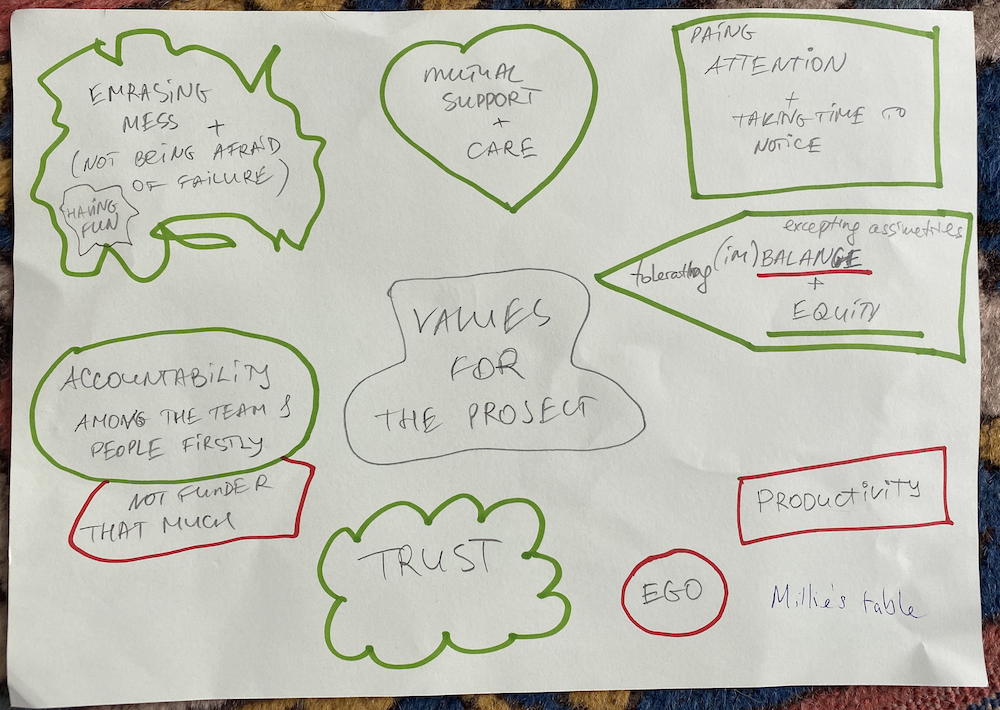 EMRASING
MESS +
(NOT BEING AFRAID
OF FAILURE)
HAVING
FUN
MUTUAL
SUPPORT
+
CARE
PAING
ATTENTION
+
TAKING TIME TO
NOTICE
excepting assimetries
tolerating (im)BALANCE
+
EQUITY
VALUES
FOR
THE PROJECT
ACCOUNTABILITY
AMONG THE TEAM &
PEOPLE FIRSTLY
NOT FUNDER
THAT MUCH
TRUST
PRODUCTIVITY
EGO
Millie's table